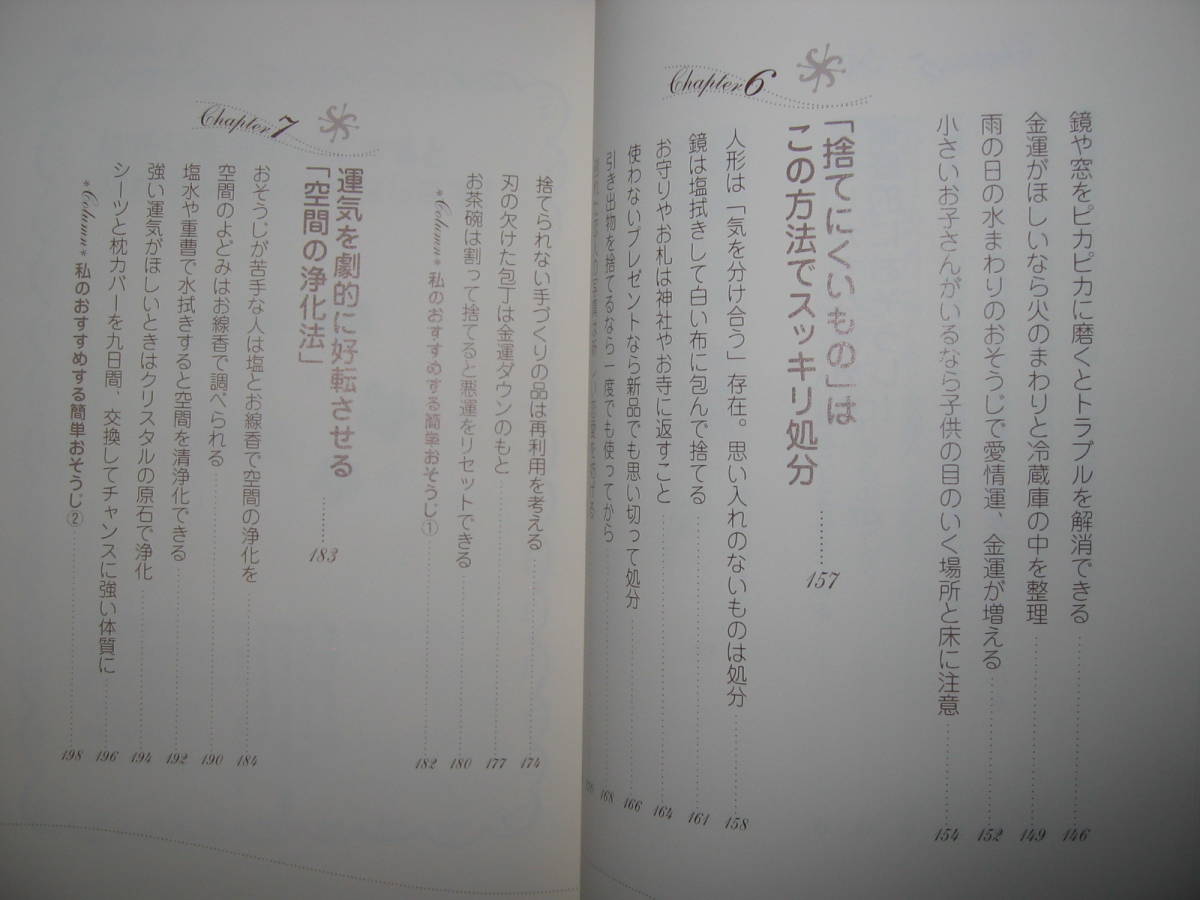 鏡や窓をピカピカに磨くとトラブルを解消できる 146
金運がほしいなら火のまわりと冷蔵庫の中を整理 149
雨の日の水まわりのおそうじで愛情運、金運が増える 152
小さいお子さんがいるなら子供の目のいく場所と床に注意 154
Chapter 6
「捨てにくいもの」は
この方法でスッキリ処分 157
人形は「気を分け合う」存在。思い入れのないものは処分 158
鏡は塩拭きして白い布に包んで捨てる 161
お守りやお札は神社やお寺に返すこと 164
使わないプレゼントなら新品でも思い切って処分 166
引き出物を捨てるなら一度でも使ってから 168
捨てられない手づくりの品は再利用を考える 174
刃の欠けた包丁は金運ダウンのもと 177
お茶碗は割って捨てると悪運をリセットできる 180
*Column* 私のおすすめする簡単おそうじ① 182
Chapter 7
運気を劇的に好転させる
「空間の浄化法」 183
おそうじが苦手な人は塩とお線香で空間の浄化を 184
空間のよどみはお線香で調べられる 190
塩水や重曹で水拭きすると空間を清浄化できる 192
強い運気がほしいときはクリスタルの原石で浄化 194
シーツと枕カバーを九日間、交換してチャンスに強い体質に 196
*Column* 私のおすすめする簡単おそうじ② 198